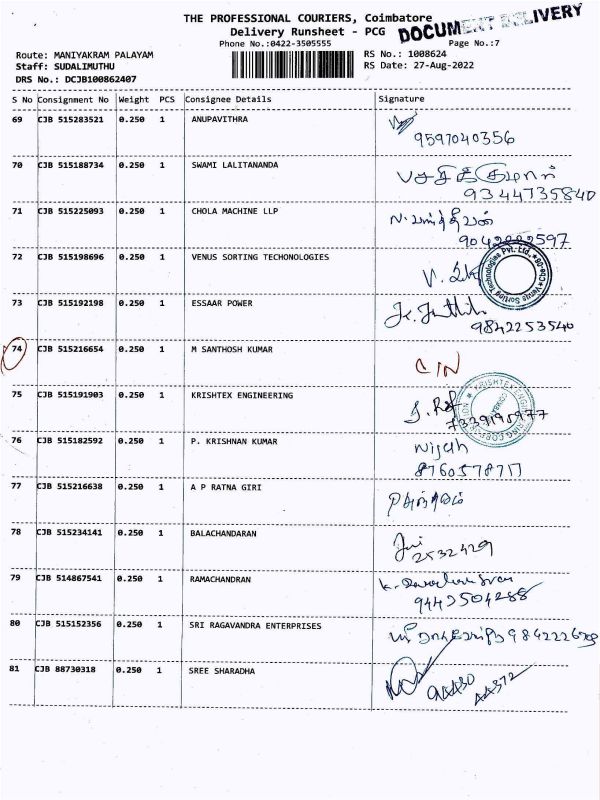 THE PROFESSIONAL COURIERS, Coimbatore
DOCUMENT DELIVERY
Delivery Runsheet - PCG
Phone No.:0422-3505555
Page No.:7
Route: MANIYAKRAM PALAYAM
RS No.: 1008624
Staff: SUDALIMUTHU
RS Date: 27-Aug-2022
DRS No.: DCJB100862407
S No Consignment No Weight PCS Consignee Details Signature
69 CJB 515283521 0.250 1 ANUPAVITHRA
9597040356
70 CJB 515188734 0.250 1 SWAMI LALITANANDA
9344735840
71 CJB 515225093 0.250 1 CHOLA MACHINE LLP
72 CJB 515198696 0.250 1 VENUS SORTING TECHONOLOGIES
Venus Sorting Technologies Pvt. Ltd.
73 CJB 515192198 0.250 1 ESSAAR POWER
9842253540
74 CJB 515216654 0.250 1 M SANTHOSH KUMAR
C/N
75 CJB 515191903 0.250 1 KRISHTEX ENGINEERING
KRISHTEX ENGINEERING CORPORATION
76 CJB 515182592 0.250 1 P. KRISHNAN KUMAR
77 CJB 515216638 0.250 1 A P RATNA GIRI
78 CJB 515234141 0.250 1 BALACHANDARAN
2532429
79 CJB 514867541 0.250 1 RAMACHANDRAN
80 CJB 515152356 0.250 1 SRI RAGAVANDRA ENTERPRISES
81 CJB 88730318 0.250 1 SREE SHARADHA